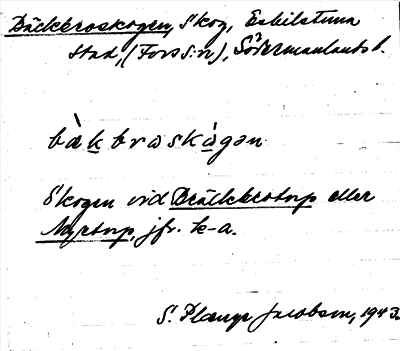 Bäckbroskogen, Skog, Eskilstuna
stad, (Fors s:n), Södermanlands l.
bàkbroskògən
Skogen vid Bäckbrotorp eller
Nytorp, jfr. k-a.
S. Plænge Jacobson, 1943.